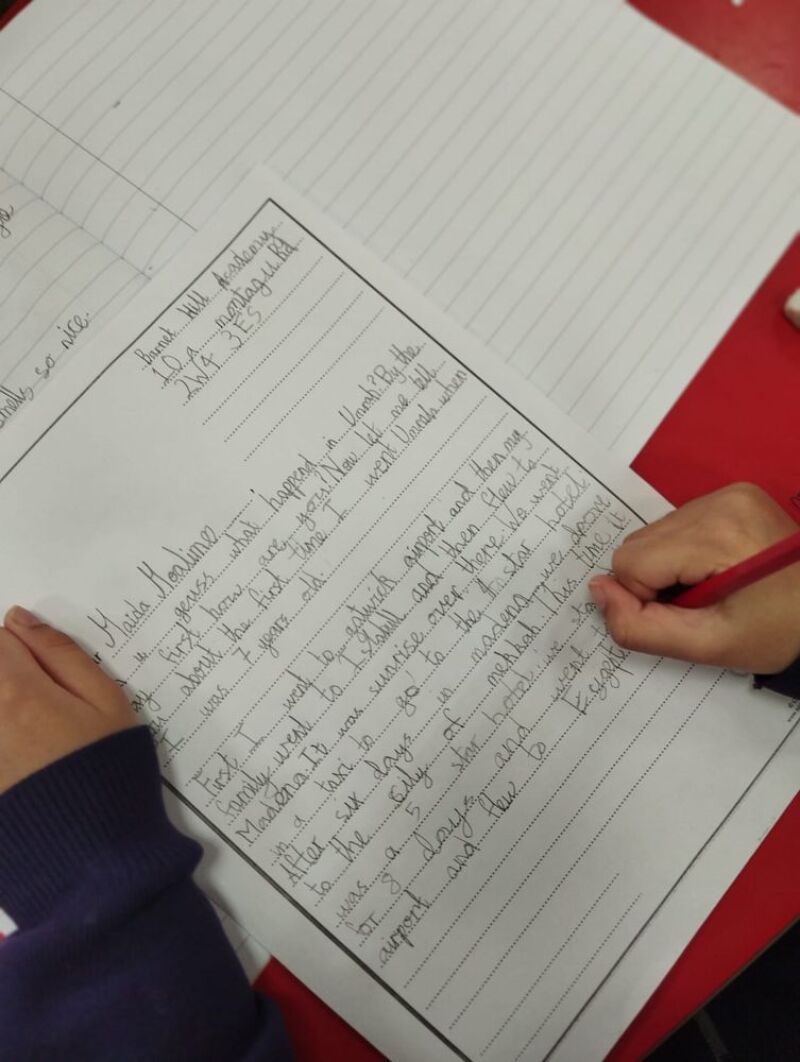 ya
smells so nice.
Barnet Hill Academy
10 A montagu Rd
2W4 3ES
Maida Moalimo
is geuss what happend in Umrah? By the
first how are you? Now let me tell
about the first time I went Umrah when
I was 7 years old
First I went to gatwick airport and then my
family went to Istabull and then flew to
Madena. It was sunrise over there. We went
in a taxi to go to the star hotel.
After six days in madena we drove
to the city of mekkah. This time it
was a 5 star hotel. we sta
for 8 days and went t
airport and flew to Egypt